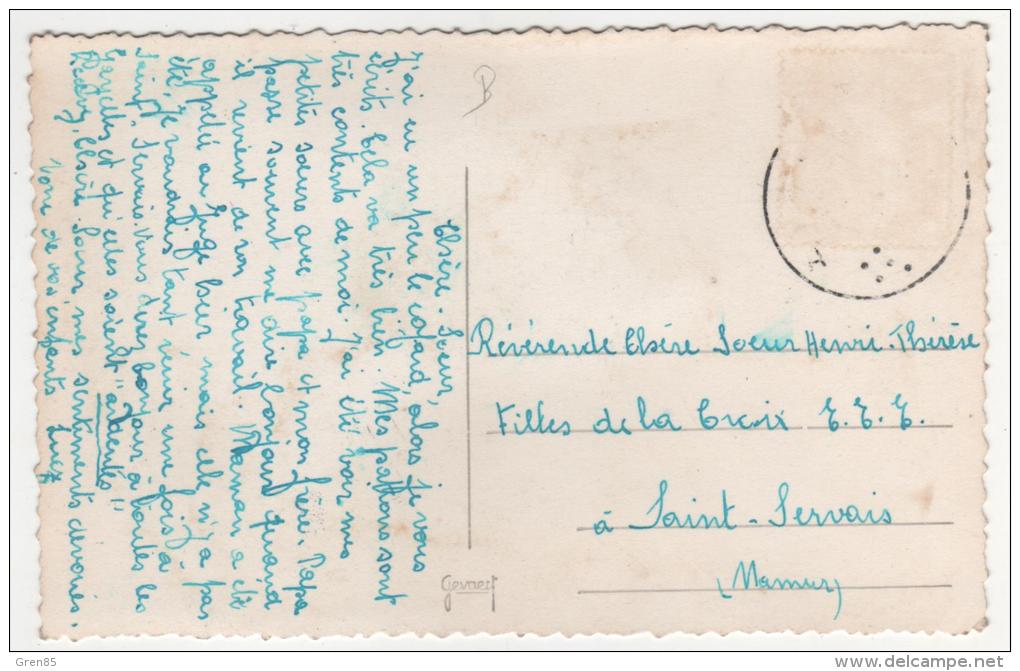 Chère Soeur,
J'ai eu un peu le cafard, alors je vous
écrits. Cela va très bien. Mes patrons sont
très contents de moi. J'ai été voir mes
petites soeurs avec papa et mon frère. Papa
passe souvent me dire bonjour quand
il revient de son travail. Maman a été
appelée au juge hier mais elle n'y a pas
été. Je voudrais tant venir une fois à
Saint-Servais. Vous direz bonjour à toutes les
et qu'elles soient
Recevez, Chère Soeur, mes sentiments dévoués.
Une de vos enfants
B
Révérende Chère Soeur Henri-Thérèse
Filles de la Croix E.T.E.
à Saint-Servais
(Namur)
Gevaert
Gren85
http://www.delcampe.net